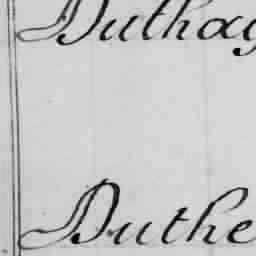 Duthay
Duthe